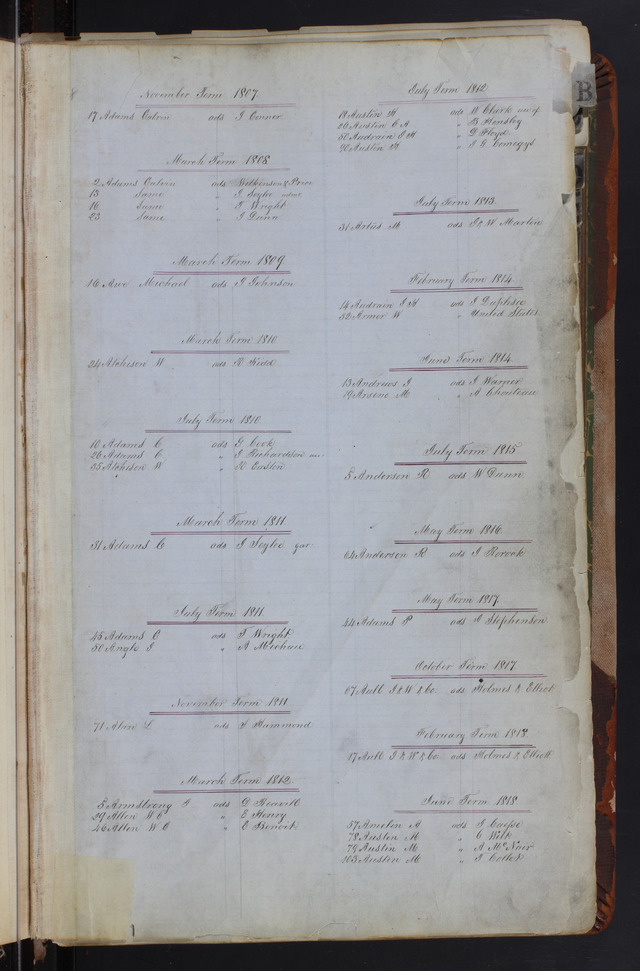 November Term 1807
17 Adams Calvin ads J Conner
March Term 1808
2 Adams Calvin ads Wilkinson & Price
13 Same " J Seylie
16 Same " T Wright
23 Same " J Dunn
March Term 1809
16 Awe Michael ads J Johnson
March Term 1810
24 Atcheson W ads R
July Term 1810
10 Adams C ads G Cook
26 Adams C " J Richardson
35 Atcheson W " R Easton
March Term 1811
31 Adams C ads J Seylie
July Term 1811
48 Adams C ads T Wright
50 Angle J " A Michau
November Term 1811
71 L ads S Hammond
March Term 1812
5 Armstrong J ads D
29 Allen W C " E Henry
46 Allen W C " E Benoit
B
July Term 1812
18 Austin H ads W Clark
20 Austin C A " B Hensley
50 Audrain J H " D Floyd
90 Austin H " J G Comegys
July Term 1813
31 M ads J & W Martin
February Term 1814
14 Audrain J H ads J Duplisie
52 Armor W " United States
June Term 1814
13 Andrews J ads J Warner
19 Arseno M " A Chouteau
July Term 1815
5 Anderson R ads W Dunn
May Term 1816
64 Anderson R ads J
May Term 1817
44 Adams P ads S Stephenson
October Term 1817
67 Aull J & W & Co. ads Holmes & Elliot
February Term 1818
17 Aull J & W & Co. ads Holmes & Elliott
June Term 1818
57 A ads J
78 Austin M " C Wilt
79 Austin M " A McNair
103 Austin M " J